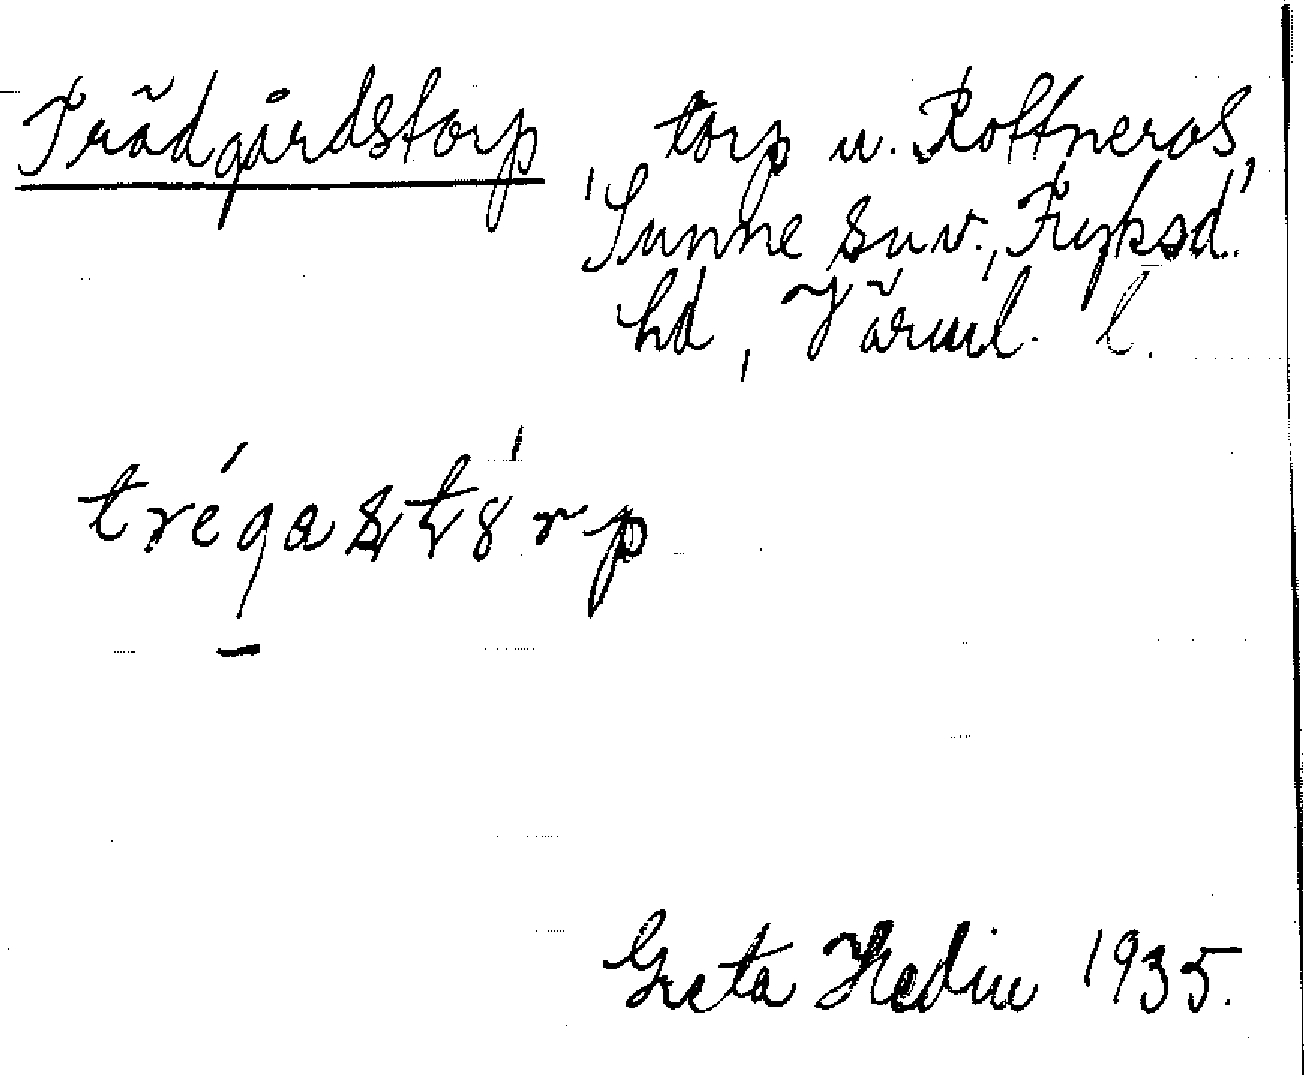 Trädgårdstorp, torp u. Rottneros,
Sunne snv., Fryksd.
hd, Värml. l.
trégastórp
Greta Hedin 1935.